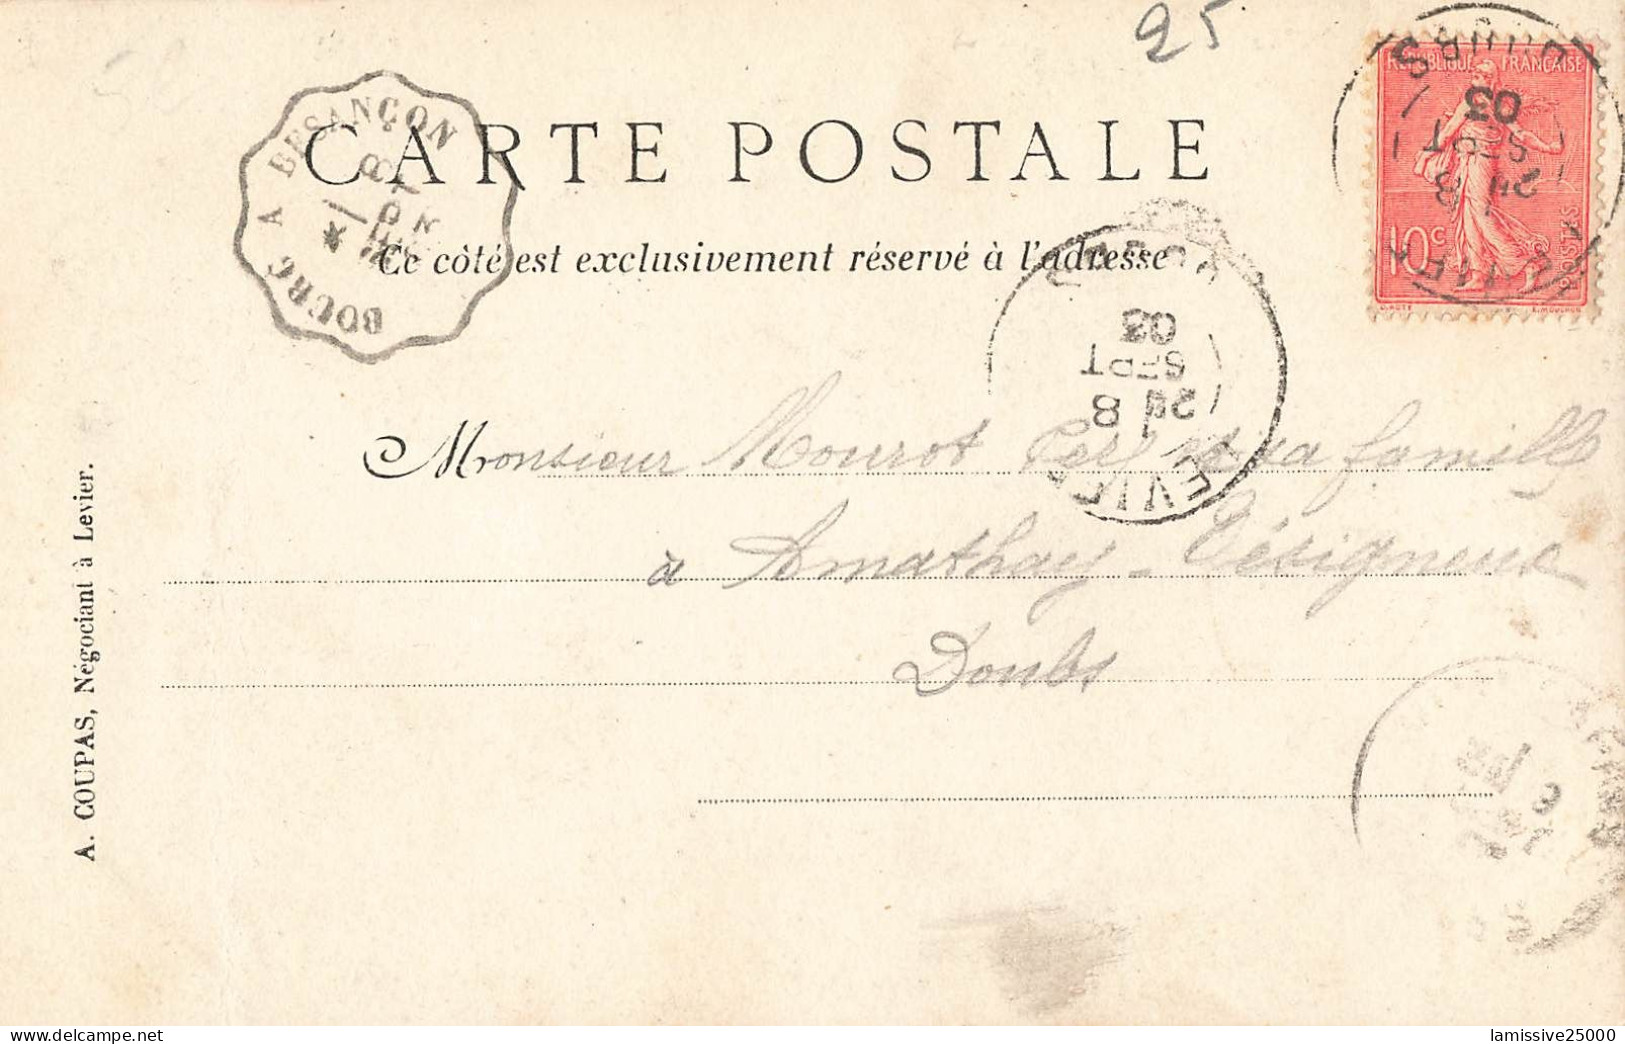 25
RÉPUBLIQUE FRANÇAISE
10c
POSTES
03
SEPT
8
LEVIER
DOUBS
BESANÇON
BOURG A
CARTE POSTALE
Ce côté est exclusivement réservé à l'adresse
03
SEPT
8
LEVIER
Monsieur Mourot et sa famille
à Amathay-Vésigneux
Doubs
A. COUPAS, Négociant à Levier.
lamissive25000